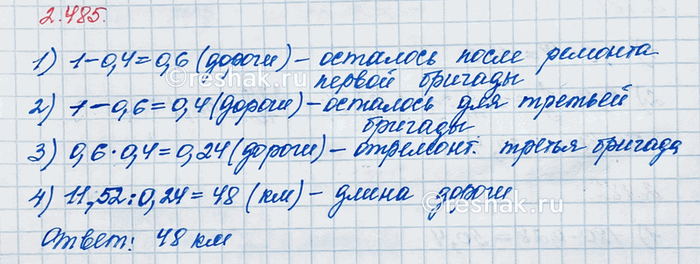 2.485.
1) 1-0,4=0,6 (дороги) - осталось после ремонта
первой бригады
2) 1-0,6=0,4 (дороги) - осталось для третьей
бригады
3) 0,6·0,4=0,24 (дороги) - отремонт. третья бригада
4) 11,52:0,24=48 (км) - длина дороги
Ответ: 48 км
reshak.ru